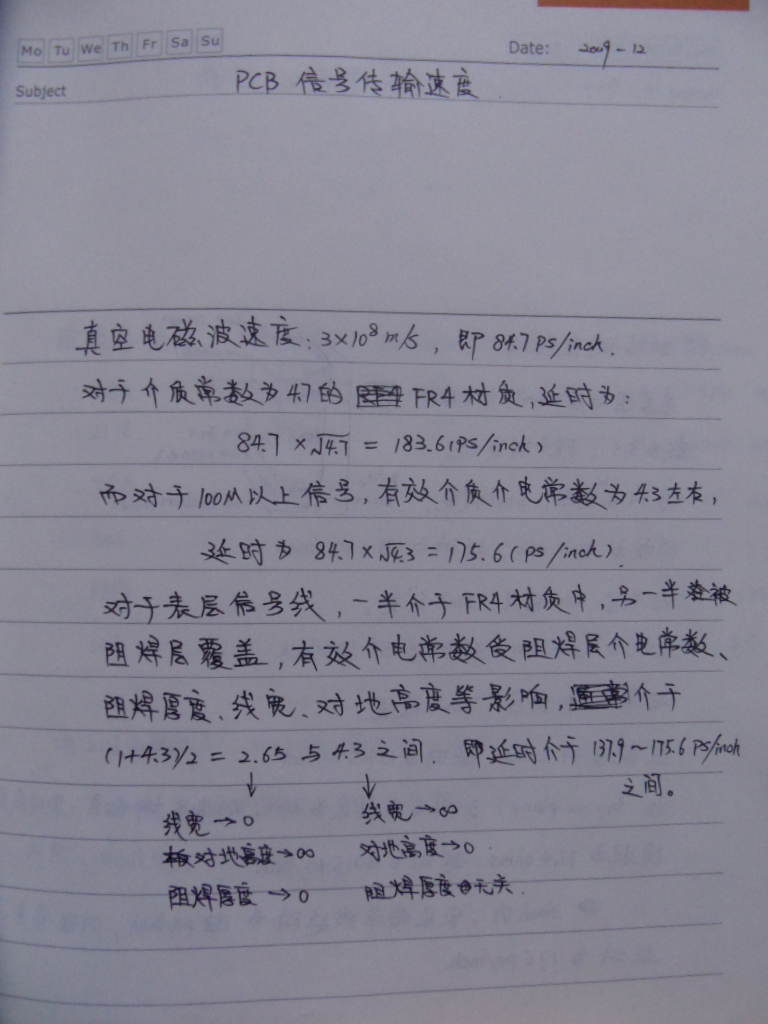 Mo Tu We Th Fr Sa Su
Date: 2009-12
Subject PCB 信号传输速度
真空电磁波速度: 3×10⁸ m/s, 即 84.7 ps/inch.
对于介质常数为 4.7 的 FR4 材质, 延时为:
84.7 × √4.7 = 183.6 (ps/inch)
而对于 100M 以上信号, 有效介质介电常数为 4.3 左右,
延时为 84.7 × √4.3 = 175.6 (ps/inch).
对于表层信号线, 一半介于 FR4 材质中, 另一半被
阻焊层覆盖, 有效介电常数受阻焊层介电常数、
阻焊厚度、线宽、对地高度等影响, 介于
(1+4.3)/2 = 2.65 与 4.3 之间. 即延时介于 137.9 ~ 175.6 ps/inch
之间。
↓ ↓
线宽 → 0 线宽 → ∞
对地高度 → ∞ 对地高度 → 0
阻焊厚度 → 0 阻焊厚度无关.